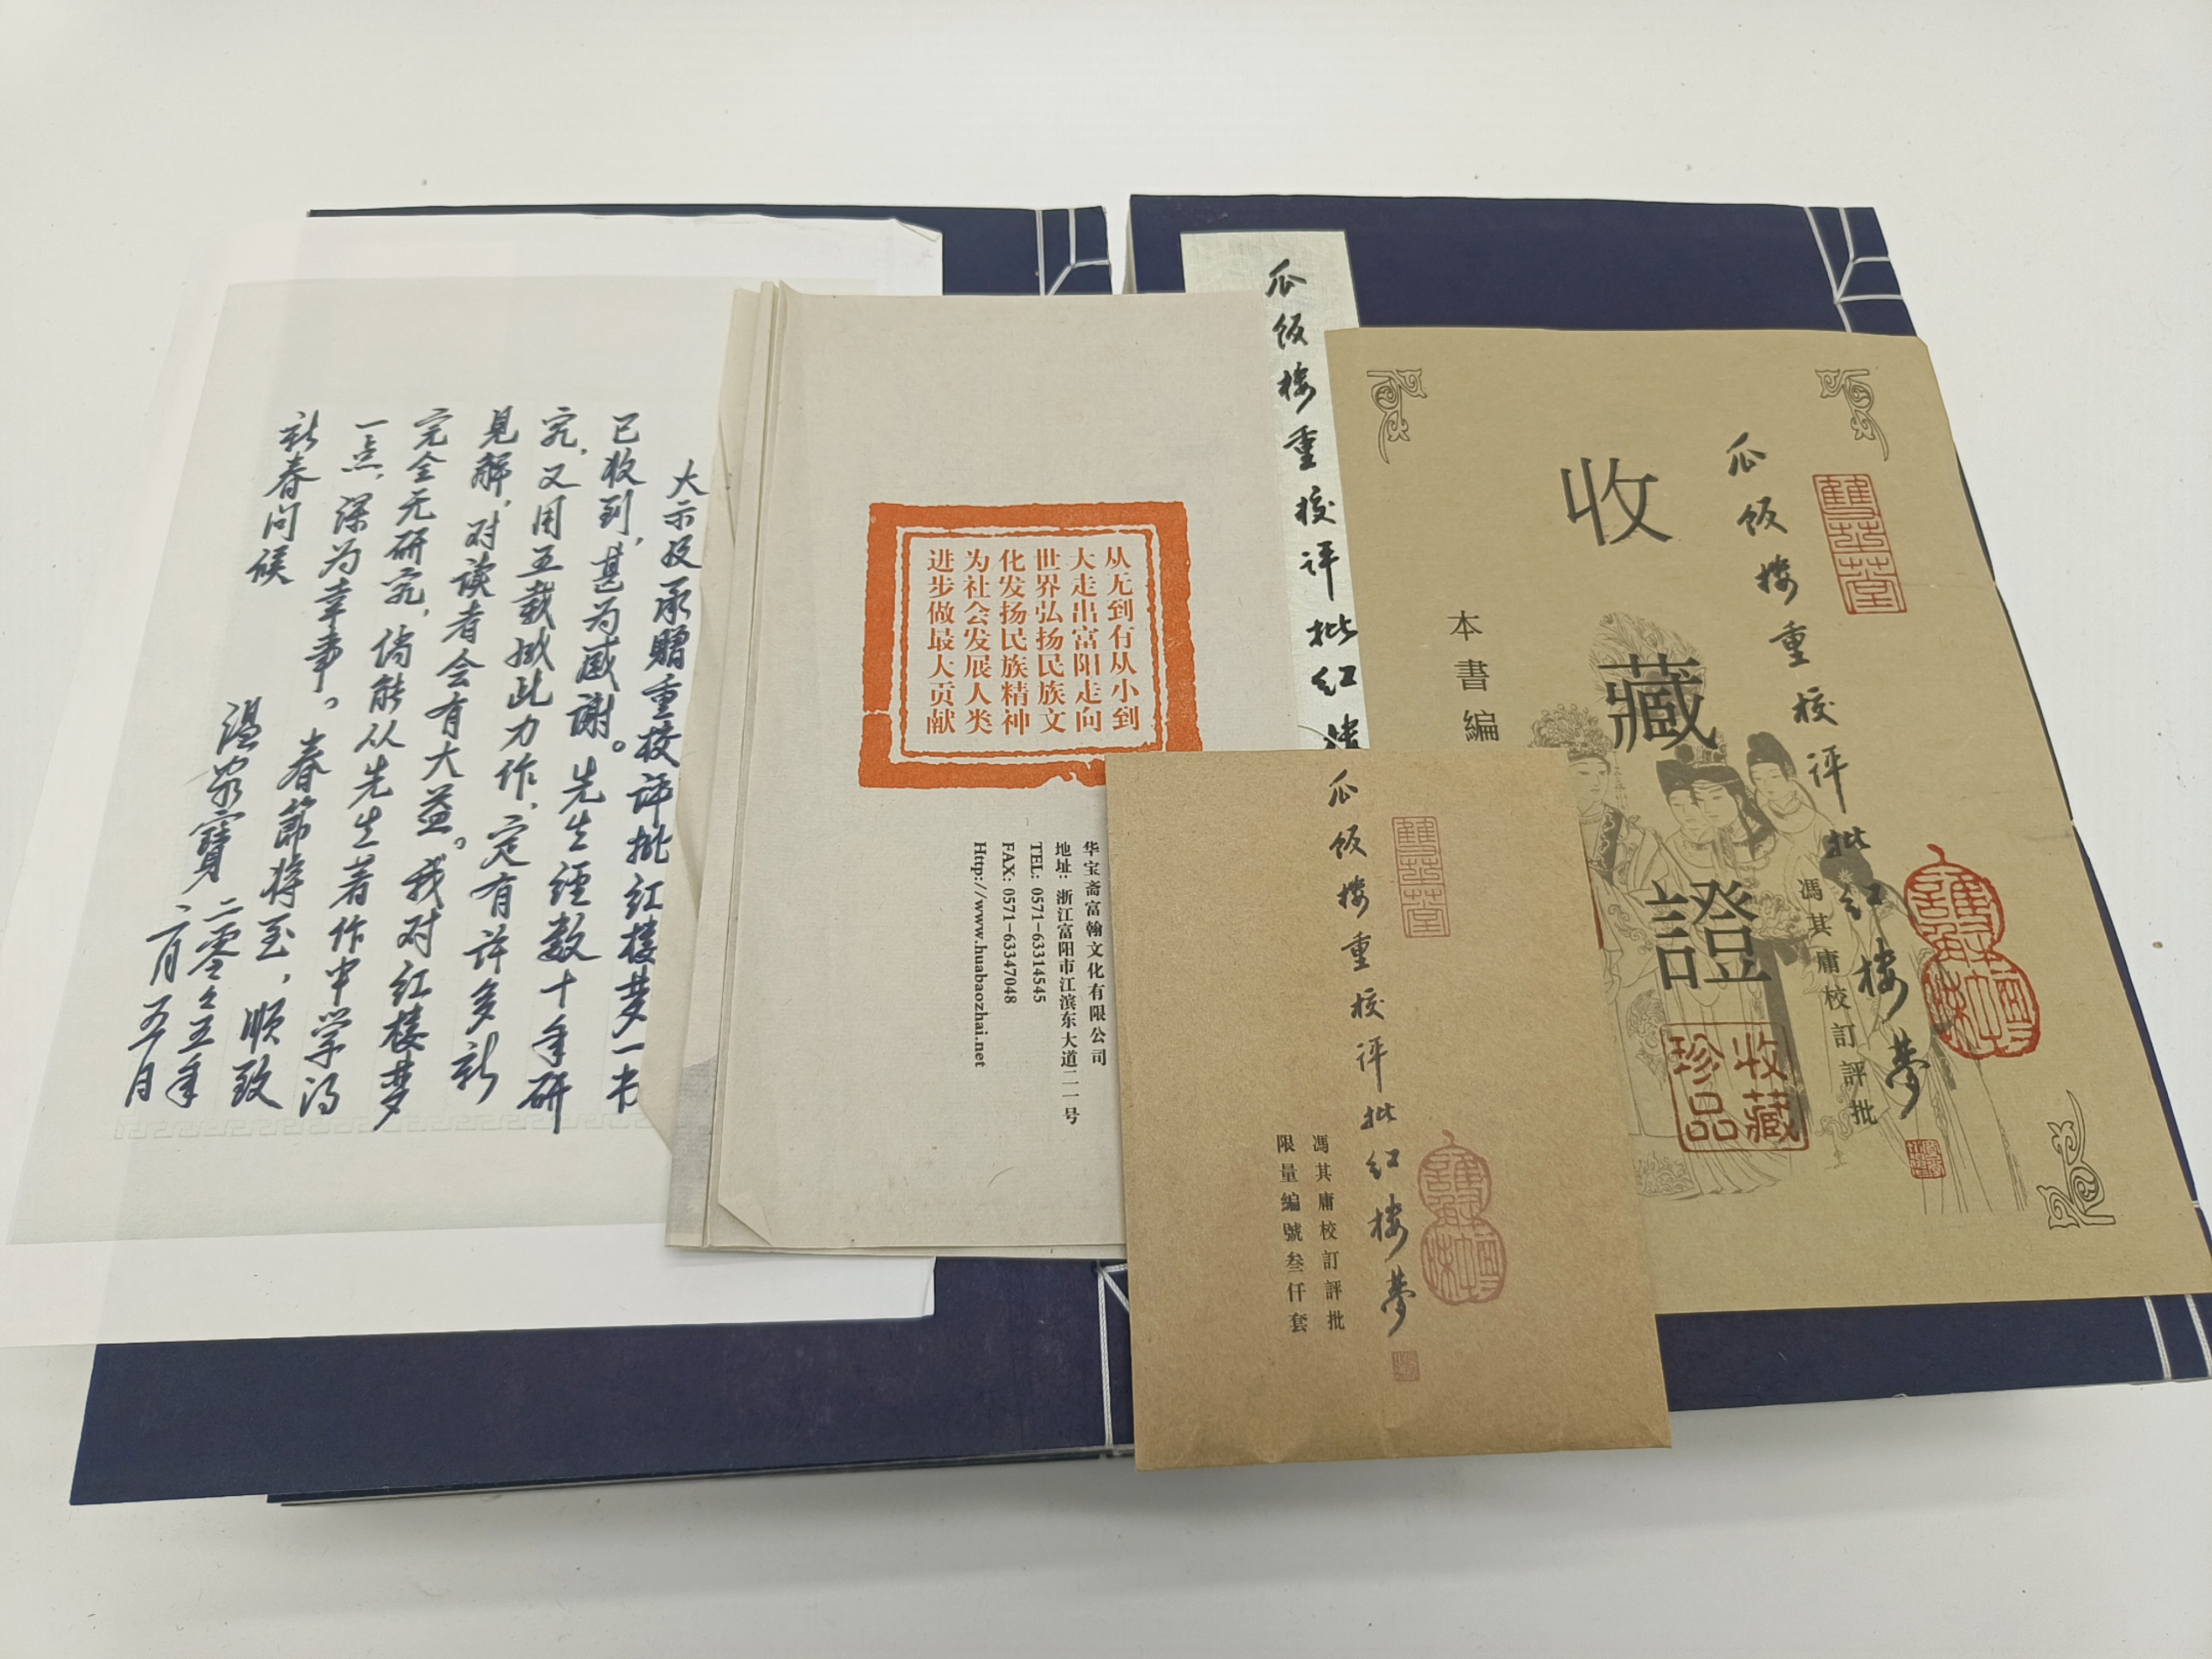 大示及承贈重校评批红楼梦一书
已收到,甚为感谢。先生经数十年研
究,又用五载成此力作,定有许多新
见解,对读者会有大益。我对红楼梦
完全无研究,倘能从先生着作中学得
一点,深为幸事。春節将至,順致
新春问候
温家寶 二零零五年
二月五日
从无到有从小到
大走出富阳走向
世界弘扬民族文
化发扬民族精神
为社会发展人类
进步做最大贡献
华宝斋富翰文化有限公司
地址: 浙江富阳市江滨东大道二一一号
TEL: 0571-63314545
FAX: 0571-63347048
Http://www.huabaozhai.net
瓜饭楼重校评批红楼
雙芝堂
瓜饭楼重校评批红楼梦
馮其庸校訂評批
收藏證
本書編
收藏珍品
雙芝堂
瓜饭楼重校评批红楼梦
馮其庸校訂評批
限量編號叁仟套